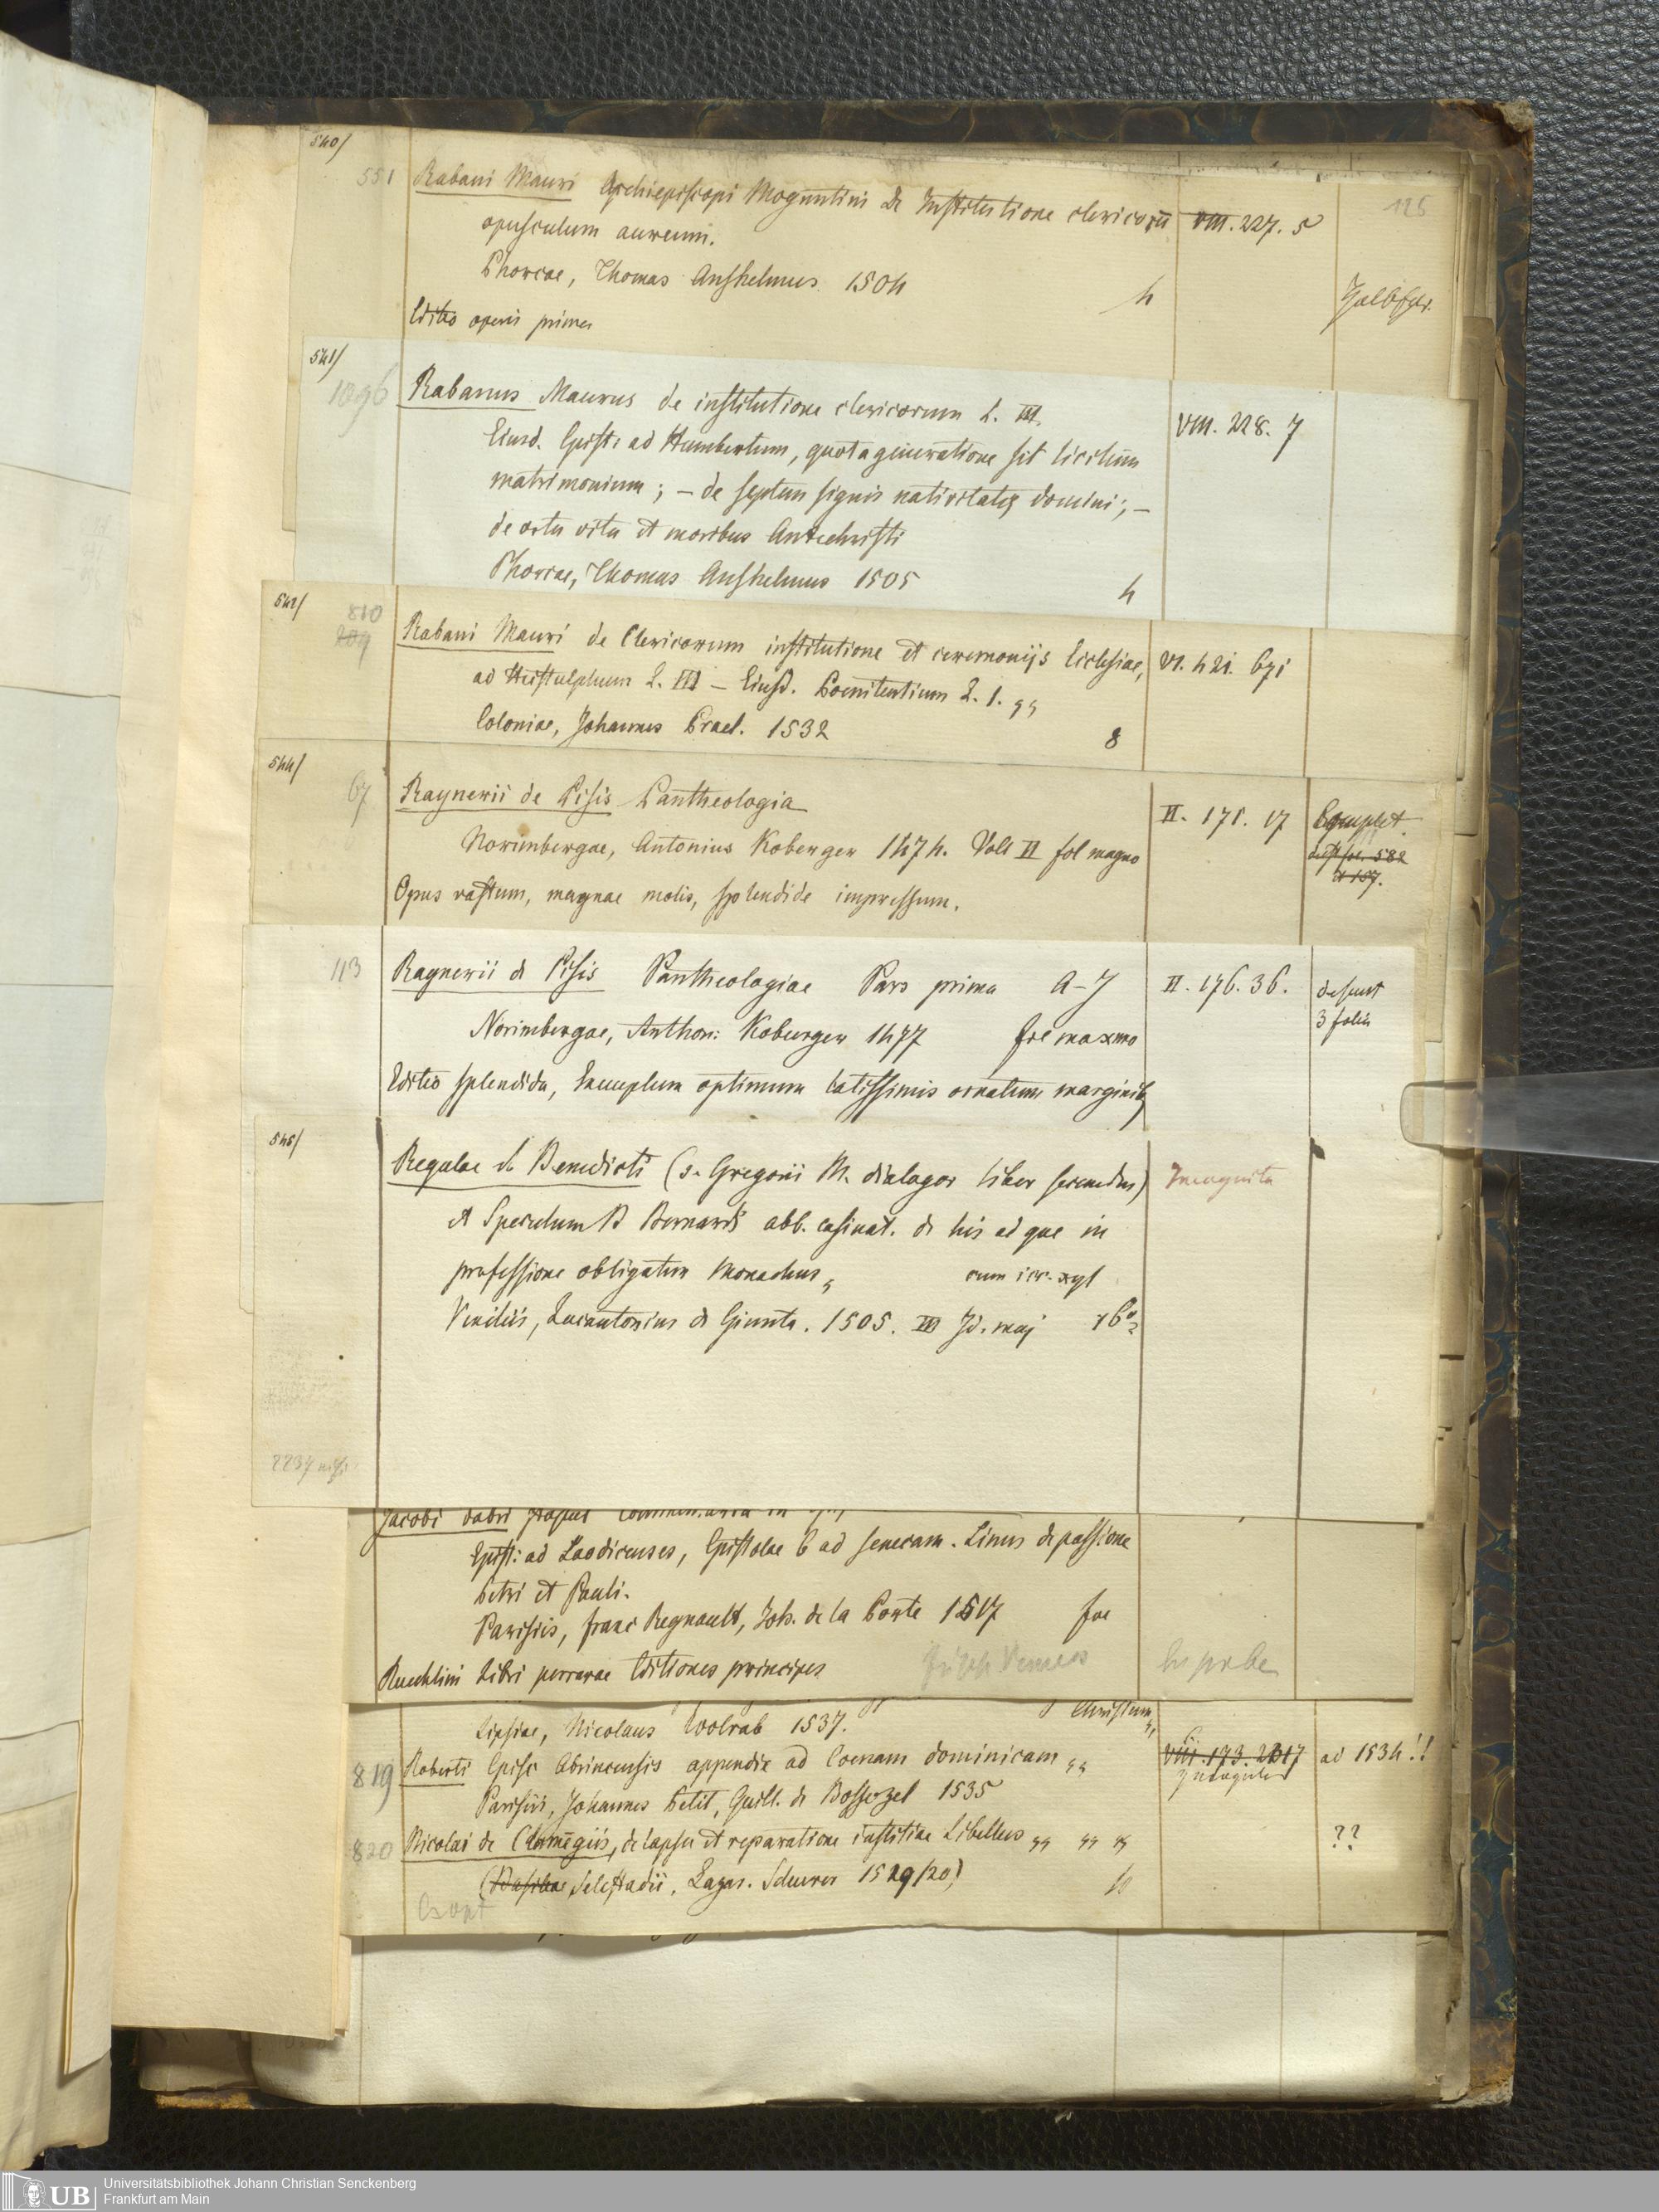 540/
551 Rabani Mauri Archiepiscopi Moguntini de Institutione clericorū VIII. 227. 5 125
opusculum aureum.
Phorcae, Thomas Anshelmus 1504 4
Editio operis princeps
541/
1096 Rabanus Maurus de institutione clericorum L. III. VIII. 228. 7
Eiusd. Epist: ad Humbertum, quota generatione sit licitum
matrimonium; – de septem signis nativitatis domini; –
de ortu vita et moribus Antichristi
Phorcae, Thomas Anshelmus 1505 4
542/
810
809
Rabani Mauri de Clericorum institutione et ceremonijs Ecclesiae, VI. 421. 671
ad Heistulphum L. III – Eiusd. Poenitentium L. 1.
Coloniae, Johannes Prael. 1532 8
544/
67 Raynerii de Pisis Pantheologia II. 171. 17 Complet.
Norimbergae, Antonius Koberger 1474. Voll II fol magno
deest fol. 582
et 157.
Opus vastum, magnae molis, splendide impressum.
113 Raynerii de Pisis Pantheologiae Pars prima A–J II. 176. 36. desunt
3 folia
Norimbergae, Anthon: Koburger 1477 fol maxmo
Editio splendida, Exemplum optimum latissimis ornatum marginib
545/
Regulae S. Benedicti (S. Gregorii M. dialogor liber secundus) Incognita
et Speculum B Bernardi abb. casinat. de his ad que in
professione obligatur Monachus cum icc. xyl
Venetiis, Lucantonius de Giunta. 1505. III Id. maj
2237
Jacobi Fabri Stapul commentaria in
Epist: ad Laodicenses, Epistolae 6 ad senecam. Linus de passione
Petri et Pauli.
Parisiis, franc Regnault, Joh. de la Porte 1517 fol
Reuchlini Libri perrarae Editiones principes
Lipsiae, Nicolaus Wolrab 1537. Christum
819 Roberti Episc Abrincensis appendix ad Coenam dominicam VIII. 173. 2617 ad 1534!!
Parisiis, Johannes Petit, Guill. de Bossozel 1535
820 Nicolai de Clamengiis, de lapsu et reparatione iustitiae Libellus ??
(Basileae Selestadii, Lazar. Schurer 1529/20)
Universitätsbibliothek Johann Christian Senckenberg
Frankfurt am Main
UB